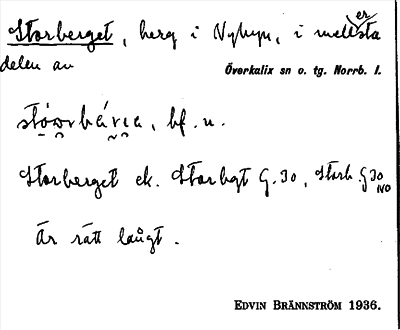 Storberget, berg i Nybyn, i mellersta
delen av
Överkalix sn o. tg. Norrb. l.
bf. n.
Storberget ek. Storbgt G. 30, Storb. G 30 NO
Är rätt långt.
EDVIN BRÄNNSTRÖM 1936.